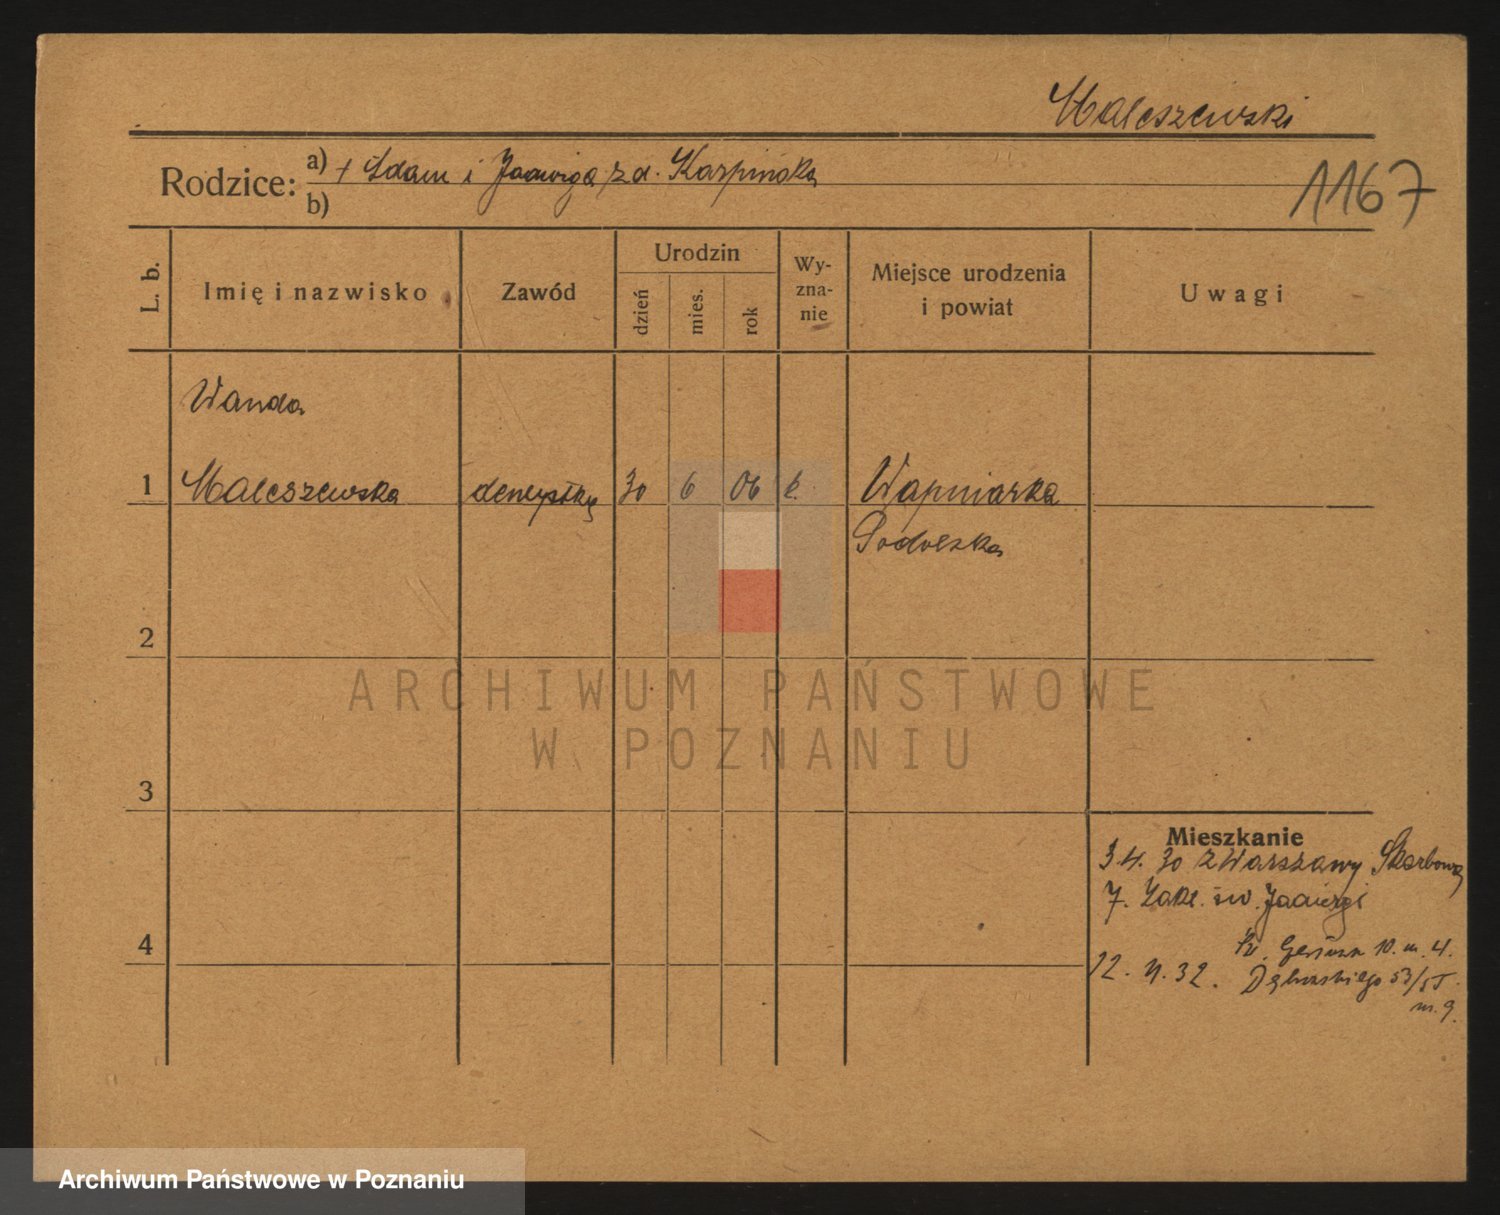 Maleszewski
Rodzice: a) + Adam i Jadwiga z d. Karpińska
b)
1167
L. b.
Imię i nazwisko
Zawód
Urodzin
dzień
mies.
rok
Wy-
zna-
nie
Miejsce urodzenia
i powiat
Uwagi
Wanda
1 Maleszewska dentystka 30 6 06 k. Wapniarka
Podolska
2
3
4
ARCHIWUM PAŃSTWOWE
W POZNANIU
Mieszkanie
3.4.30 z Warszawy Skarbowa
7. Zakł. św. Jadwigi
10. m. 4.
12. 4. 32. Dąbrowskiego 53/55
m. 9.
Archiwum Państwowe w Poznaniu